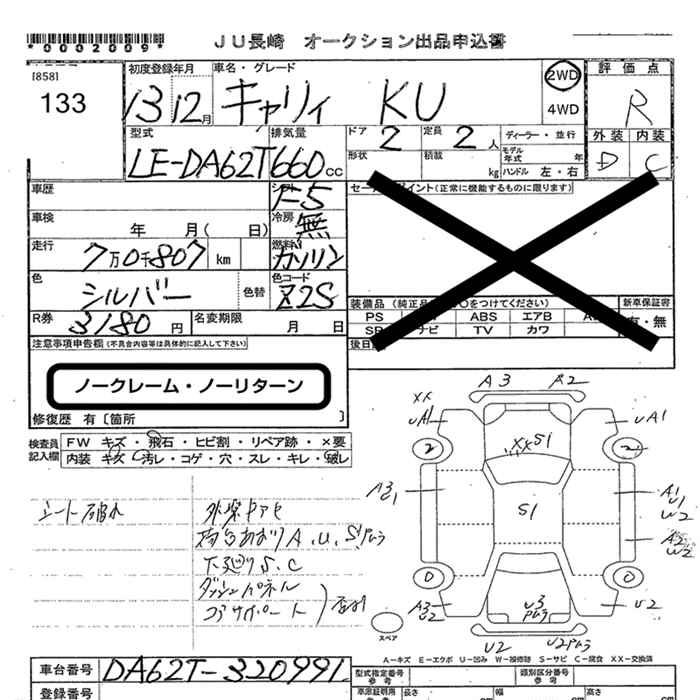 *0002009*
JU長崎 オークション出品申込書
[858]
133
初度登録年月
13年12月
車名・グレード
キャリィ KU
2WD
4WD
評価点
R
型式
LE-DA62T
排気量
660cc
ドア 2
定員 2人
形状
積載 kg
ディーラー・並行
モデル年式 年
ハンドル 左・右
外装 内装
D C
車歴
シフト
F5
車検 年 月( 日)
冷房
無
走行 7万0千807 km
燃料
ガソリン
色 シルバー
色替
色コード
Z2S
R券 3180円
名変期限 月 日
ポイント(正常に機能するものに限ります)
装備品 (純正品 ○をつけてください)
新車保証書
有・無
PS ABS エアB
ナビ TV カワ
後日
注意事項申告欄(不具合内容等は具体的に記入して下さい)
ノークレーム・ノーリターン
修復歴 有〔箇所 〕
検査員記入欄
FW キズ・飛石・ヒビ割・リペア跡・×要
内装 キズ・汚レ・コゲ・穴・スレ・キレ・破レ
シート破れ
外装キアセ
荷台あおりA.U.S1ムラ
下廻りS.C
ダッシュパネル
コアサポート
A3 A2
XX
UA1
UA1
2
2
XXS1
S1
A3
C1
A1
U1
W2
A2
W2
0
0
A3
C2
U3
Pムラ
U2
U2
U2Pムラ
スペア
A…キズ E…エクボ U…凹み W…補修跡 S…サビ C…腐食 XX…交換済
車台番号 DA62T-320991
登録番号
型式指定番号
参考
類別区分番号
参考
車庫証明用
参考
長さ
幅
高さ